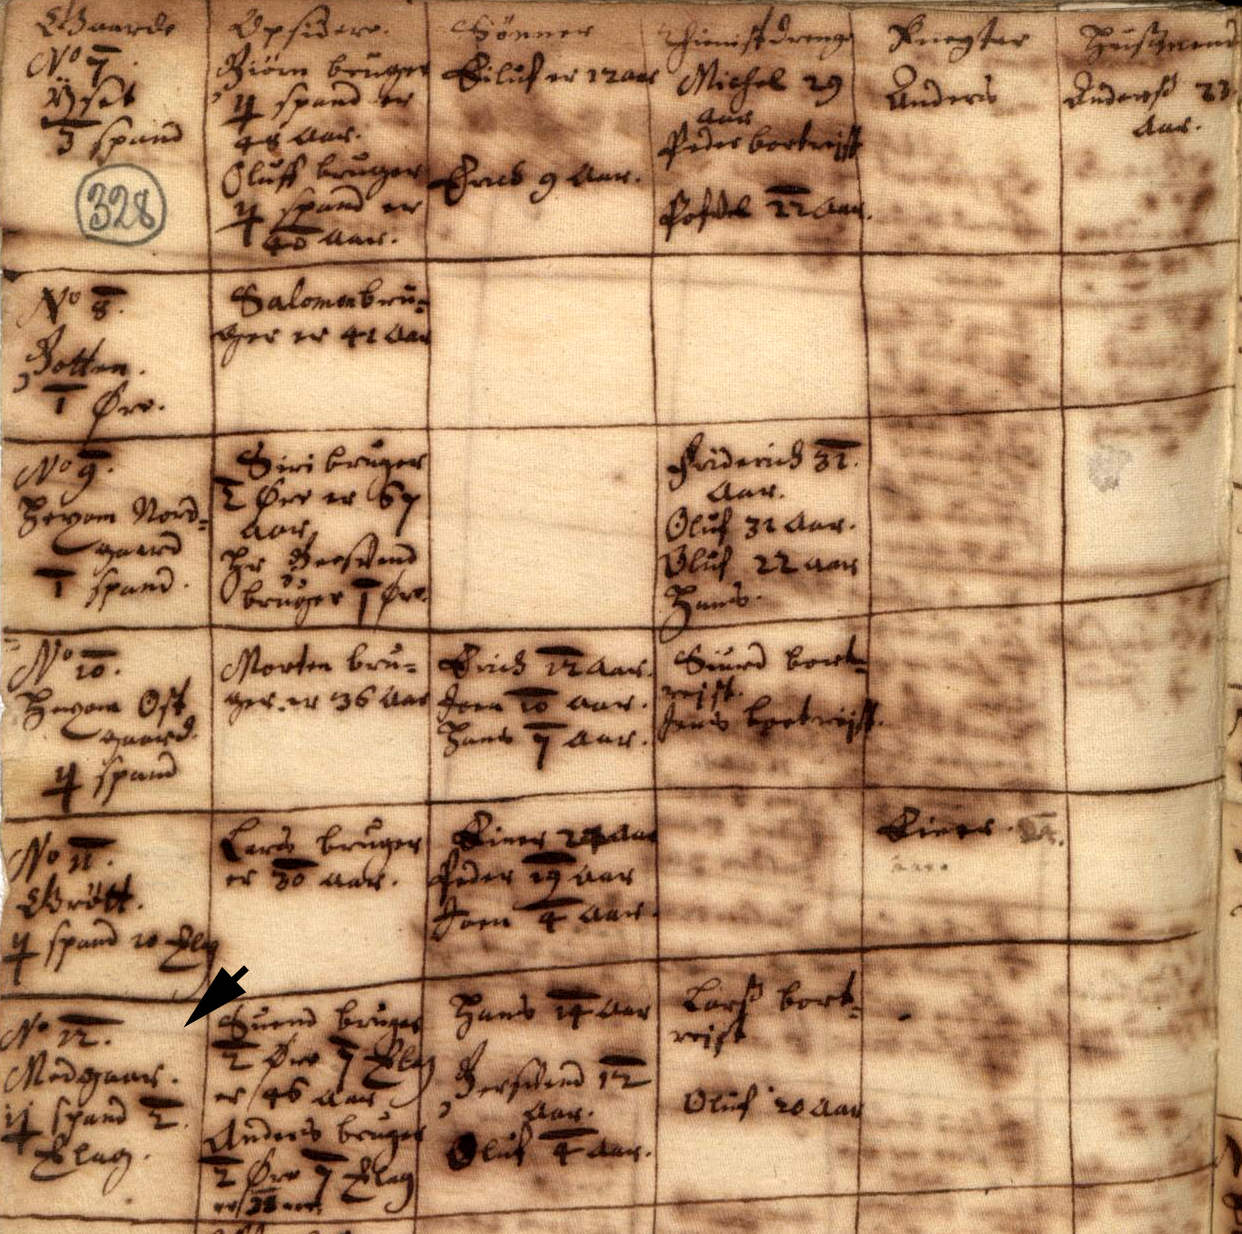 Gaarde Opsidere. Sönner Thienistdrenge Knegter Hußmend
No 7.
3 spand
328
Biörn bruger
4 spand er
48 Aar.
Oluff bruger
4 spand er
40 Aar.
Eiluf er 12 aar
Erich 9 Aar.
Michel 29
aar
Peder bortreist
22 Aar.
Anders
Anderß 23
Aar.
No 8.
Totten.
1 Øre.
Salomon bru=
ger er 41 Aar
No 9.
Hegom Nord=
gaard
1 spand.
Siri bruger
2 Øre er 67
Aar
Hr
bruger 1 Øre.
Friderich 31.
Aar.
Oluf 31 Aar.
Oluf 22 aar
Hans.
No 10.
Hegom Øst
gaard.
4 spand
Morten bru=
ger. er 36 Aar
Erich 12 Aar.
Joen 10 Aar.
Hans 7 Aar.
Siurd bort=
reist.
Jens bortreist.
No 11.
Grött.
4 spand 20 Mlag
Lars bruger
er 30 aar.
Einer 24 Aar
Peder 19 Aar
Joen 4 Aar.
Einer.
aar.
No 12.
Medgaar.
4 spand 2.
Mlag.
Suend bruger
2 Øre 7 Mlag
er 46 Aar
Anders bruger
2 Øre 7 Mlag
er 38 aar.
Hans 14 Aar
12
Aar.
Oluf 4 Aar.
Larß bort=
reist
Oluf 20 Aar